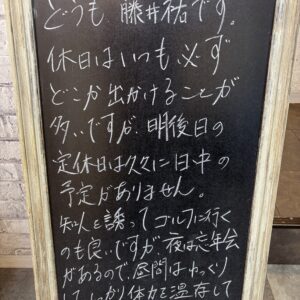 どうも、藤井祐です。
休日はいつも必ず
どこか出かけることが
多いですが、明後日の
定休日は久々に日中の
予定がありません。
知人を誘ってゴルフに行く
のも良いですが、夜は忘年会
があるので、昼間はゆっくり
して、しっかり体力を温存して